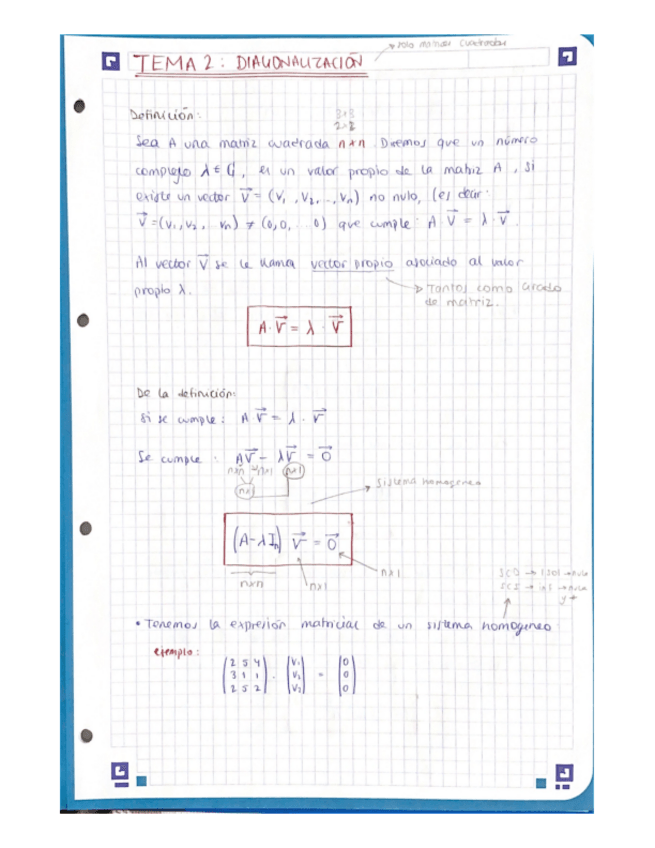 solo matrices cuadradas
TEMA 2: DIAGONALIZACIÓN
Definición:
3x3
2x2
Sea A una matriz cuadrada nxn Diremos que un número
complejo λ ∈ C, es un valor propio de la matriz A, si
existe un vector V = (V₁, V₂, .., Vn) no nulo, (es decir:
V = (V₁, V₂, Vn) ≠ (0,0, .. 0) que cumple: A V = λ · V.
Al vector V se le llama vector propio asociado al valor
propio λ.
Tantos como Grado
de matriz.
A · V = λ · V
De la definición:
Si se cumple: A V = λ · V
Se cumple: AV - λV = 0
nxn nx1 nx1
nx1
sistema homogeneo
(A - λIn) V = 0
nxn nx1 nx1
SCD → 1 sol → nula
SCI → → nula
y +
• Tenemos la expresión matricial de un sistema homogeneo
ejemplo:
(2 5 4) (V₁) (0)
(3 1 1) · (V₂) = (0)
(2 5 2) (V₃) (0)